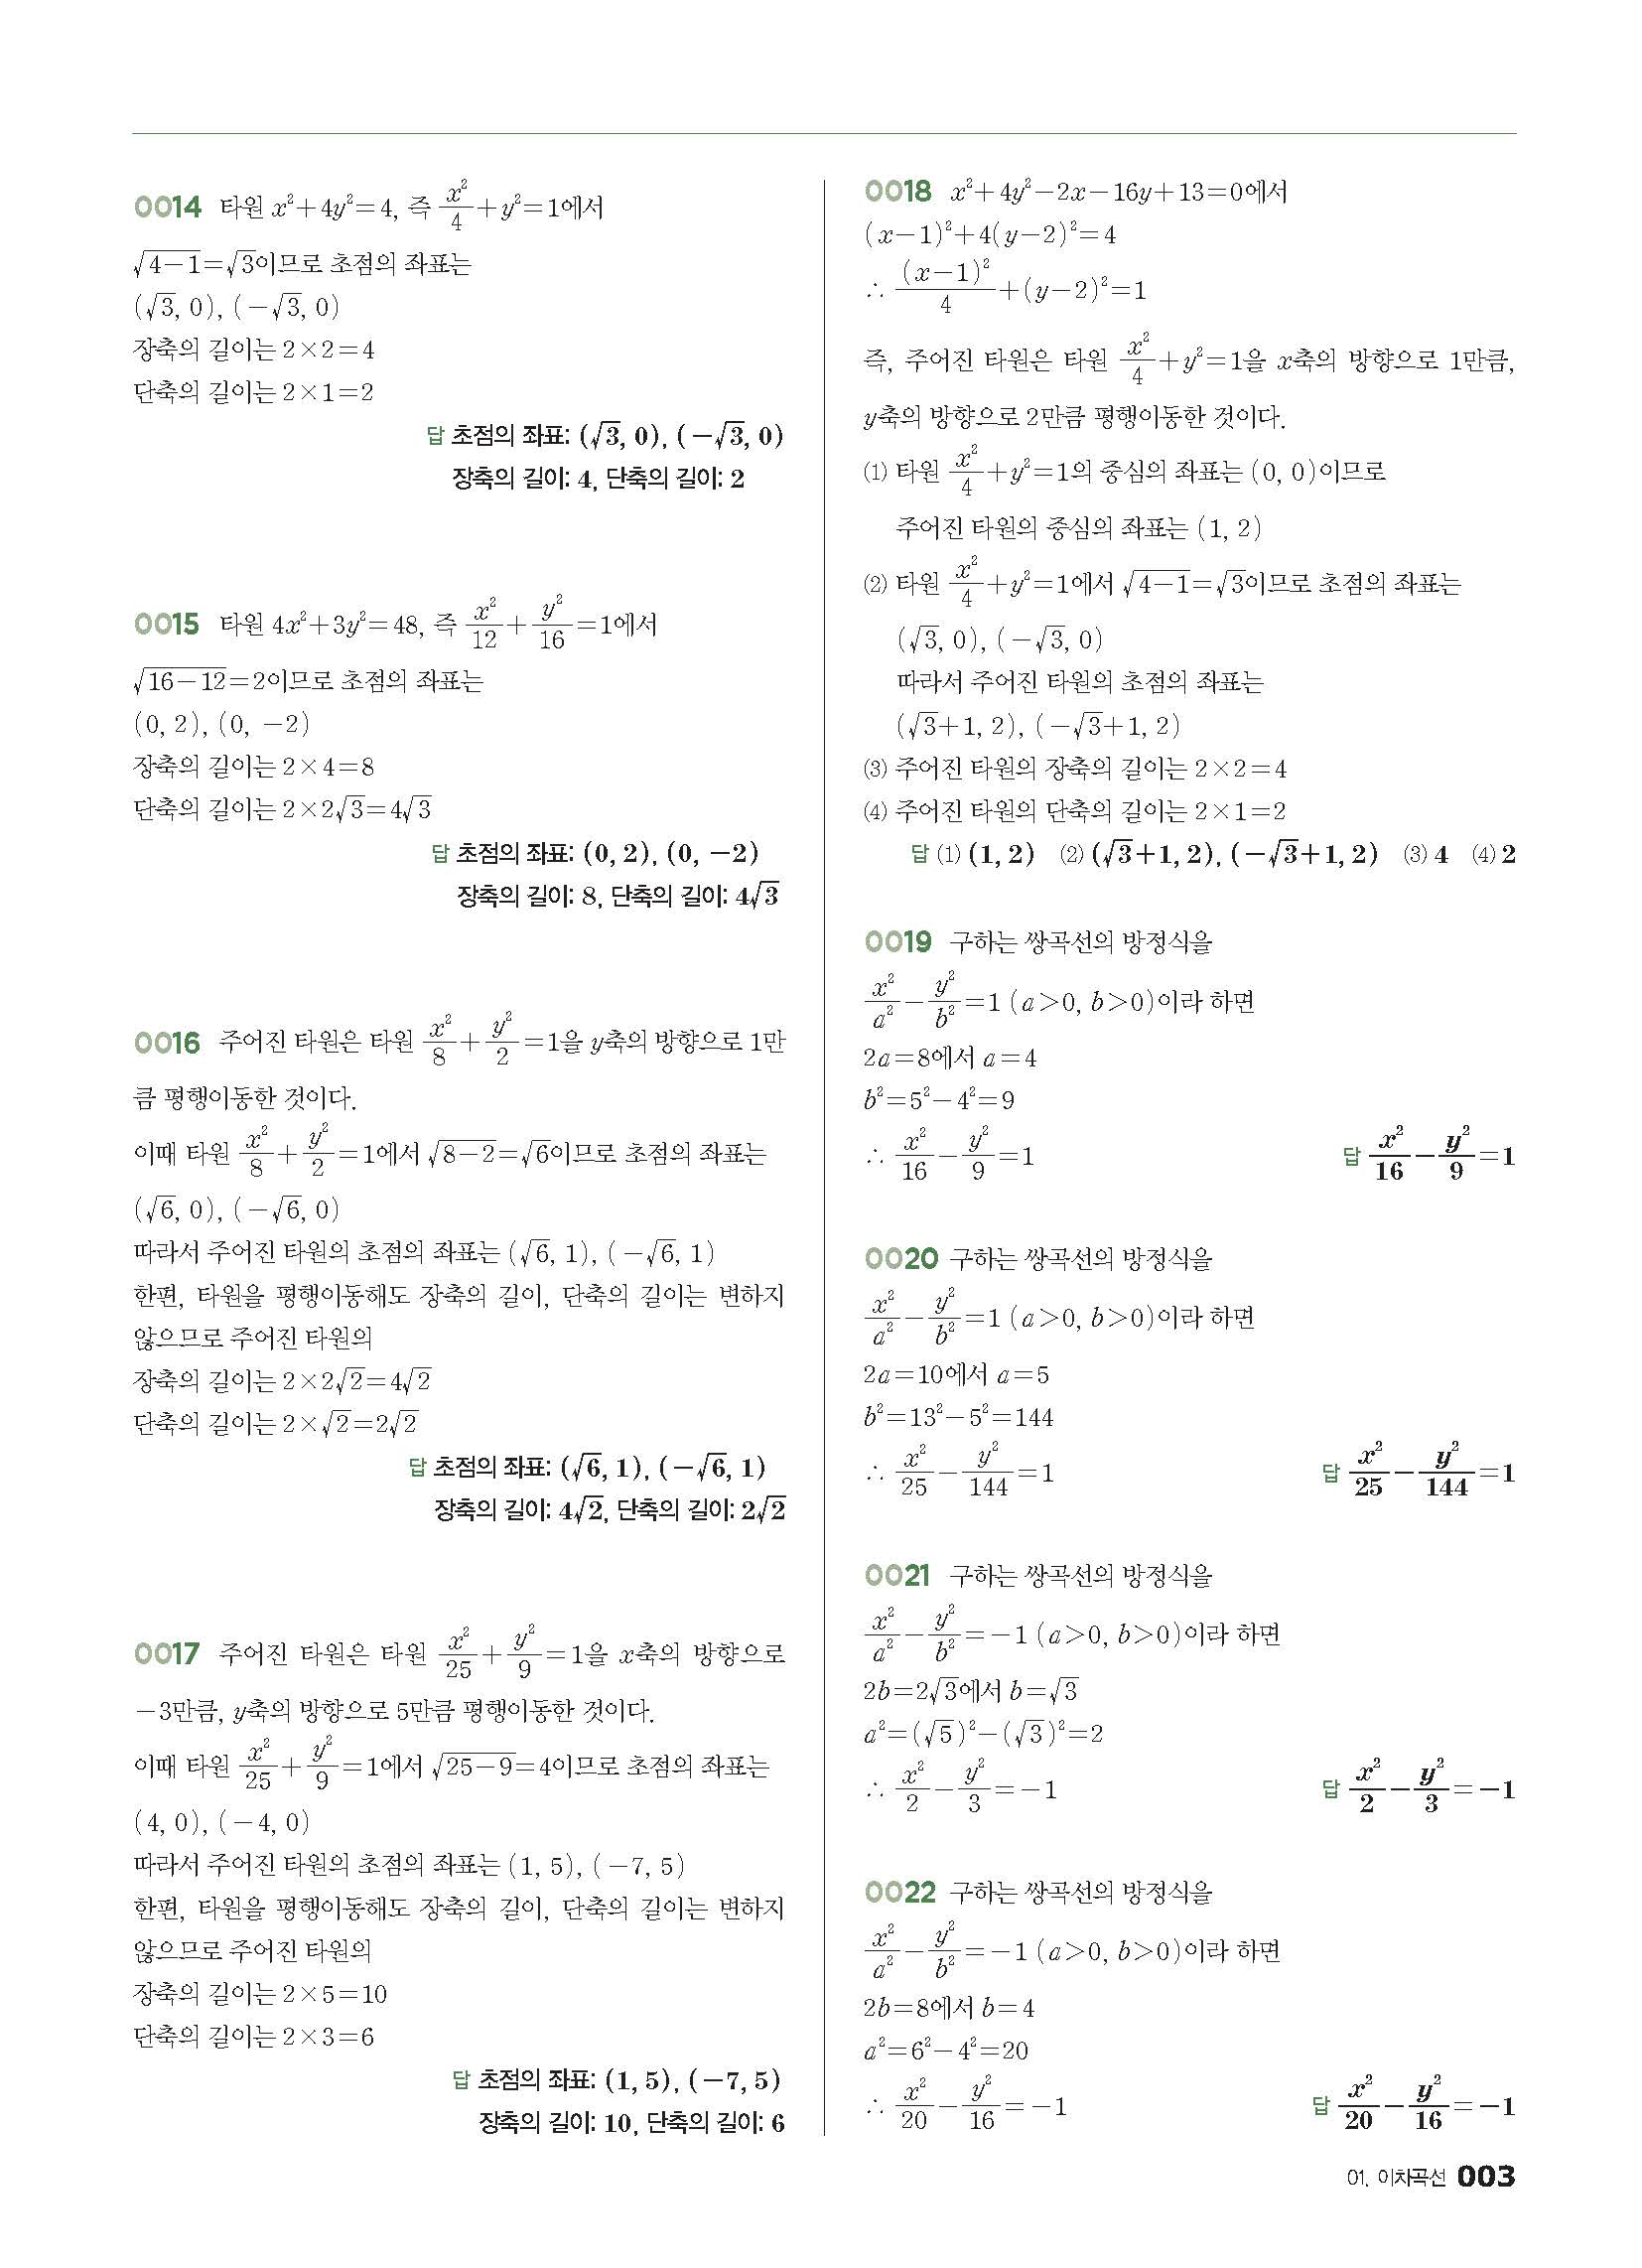 0014 타원 x²+4y²=4, 즉 x²/4+y²=1에서
√(4-1)=√3이므로 초점의 좌표는
(√3, 0), (-√3, 0)
장축의 길이는 2×2=4
단축의 길이는 2×1=2
답 초점의 좌표: (√3, 0), (-√3, 0)
장축의 길이: 4, 단축의 길이: 2
0015 타원 4x²+3y²=48, 즉 x²/12+y²/16=1에서
√(16-12)=2이므로 초점의 좌표는
(0, 2), (0, -2)
장축의 길이는 2×4=8
단축의 길이는 2×2√3=4√3
답 초점의 좌표: (0, 2), (0, -2)
장축의 길이: 8, 단축의 길이: 4√3
0016 주어진 타원은 타원 x²/8+y²/2=1을 y축의 방향으로 1만
큼 평행이동한 것이다.
이때 타원 x²/8+y²/2=1에서 √(8-2)=√6이므로 초점의 좌표는
(√6, 0), (-√6, 0)
따라서 주어진 타원의 초점의 좌표는 (√6, 1), (-√6, 1)
한편, 타원을 평행이동해도 장축의 길이, 단축의 길이는 변하지
않으므로 주어진 타원의
장축의 길이는 2×2√2=4√2
단축의 길이는 2×√2=2√2
답 초점의 좌표: (√6, 1), (-√6, 1)
장축의 길이: 4√2, 단축의 길이: 2√2
0017 주어진 타원은 타원 x²/25+y²/9=1을 x축의 방향으로
-3만큼, y축의 방향으로 5만큼 평행이동한 것이다.
이때 타원 x²/25+y²/9=1에서 √(25-9)=4이므로 초점의 좌표는
(4, 0), (-4, 0)
따라서 주어진 타원의 초점의 좌표는 (1, 5), (-7, 5)
한편, 타원을 평행이동해도 장축의 길이, 단축의 길이는 변하지
않으므로 주어진 타원의
장축의 길이는 2×5=10
단축의 길이는 2×3=6
답 초점의 좌표: (1, 5), (-7, 5)
장축의 길이: 10, 단축의 길이: 6
0018 x²+4y²-2x-16y+13=0에서
(x-1)²+4(y-2)²=4
∴ (x-1)²/4+(y-2)²=1
즉, 주어진 타원은 타원 x²/4+y²=1을 x축의 방향으로 1만큼,
y축의 방향으로 2만큼 평행이동한 것이다.
⑴ 타원 x²/4+y²=1의 중심의 좌표는 (0, 0)이므로
주어진 타원의 중심의 좌표는 (1, 2)
⑵ 타원 x²/4+y²=1에서 √(4-1)=√3이므로 초점의 좌표는
(√3, 0), (-√3, 0)
따라서 주어진 타원의 초점의 좌표는
(√3+1, 2), (-√3+1, 2)
⑶ 주어진 타원의 장축의 길이는 2×2=4
⑷ 주어진 타원의 단축의 길이는 2×1=2
답 ⑴ (1, 2) ⑵ (√3+1, 2), (-√3+1, 2) ⑶ 4 ⑷ 2
0019 구하는 쌍곡선의 방정식을
x²/a²-y²/b²=1 (a>0, b>0)이라 하면
2a=8에서 a=4
b²=5²-4²=9
∴ x²/16-y²/9=1 답 x²/16-y²/9=1
0020 구하는 쌍곡선의 방정식을
x²/a²-y²/b²=1 (a>0, b>0)이라 하면
2a=10에서 a=5
b²=13²-5²=144
∴ x²/25-y²/144=1 답 x²/25-y²/144=1
0021 구하는 쌍곡선의 방정식을
x²/a²-y²/b²=-1 (a>0, b>0)이라 하면
2b=2√3에서 b=√3
a²=(√5)²-(√3)²=2
∴ x²/2-y²/3=-1 답 x²/2-y²/3=-1
0022 구하는 쌍곡선의 방정식을
x²/a²-y²/b²=-1 (a>0, b>0)이라 하면
2b=8에서 b=4
a²=6²-4²=20
∴ x²/20-y²/16=-1 답 x²/20-y²/16=-1
01. 이차곡선 003